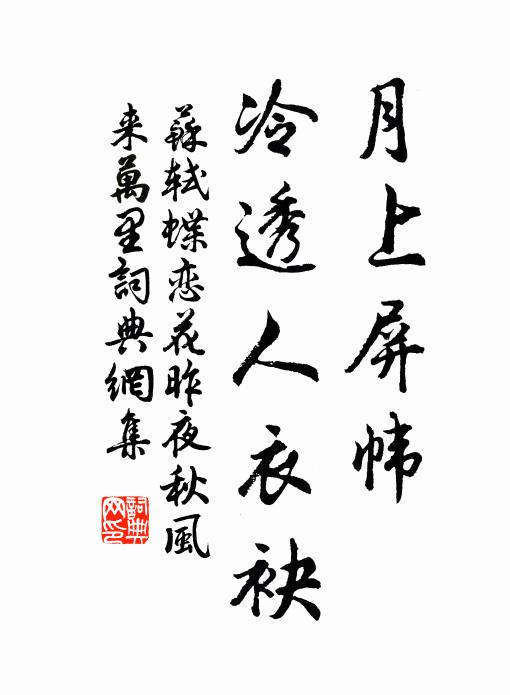 月上屏帏
冷透人衣袂
蘇軾蝶恋花昨夜秋風
来萬里詞典網集
詞典
网印